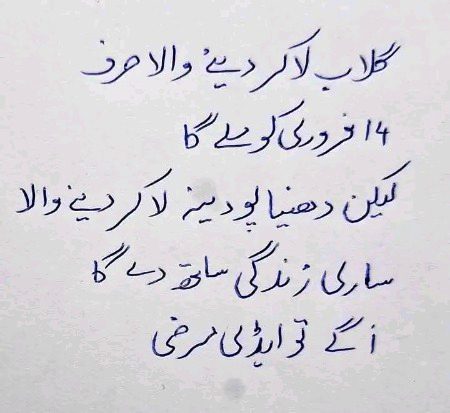 گلاب لا کر دینے والا صرف
14 فروری کو ملے گا
لیکن دھنیا پودینہ لا کر دینے والا
ساری زندگی ساتھ دے گا
اگے تواڈی مرضی